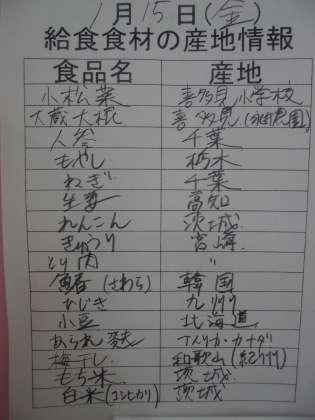 1月15日(金)
給食食材の産地情報
食品名 産地
小松菜 喜多見小学校
大蔵大根 喜多見
人参 千葉
もやし 栃木
ねぎ 千葉
生姜 高知
れんこん 茨城
きゅうり 宮崎
とり肉 〃
鰆(さわら) 韓国
ひじき 九州
小豆 北海道
あられ 麦 アメリカ・カナダ
梅干し 和歌山(紀州)
もち米 茨城
白米(コシヒカリ) 茨城